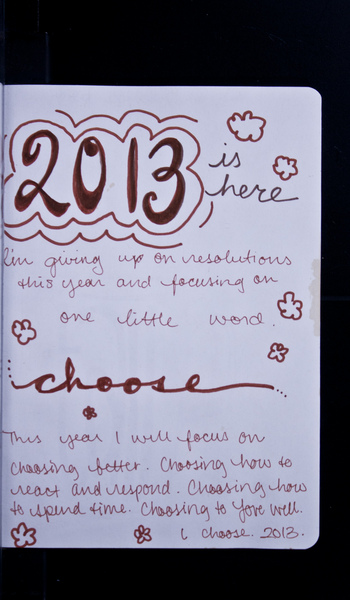 2013
is
here
I'm giving up on resolutions
this year and focusing on
one little word.
choose
This year I will focus on
choosing better. Choosing how to
react and respond. Choosing how
to spend time. Choosing to love well.
I choose. 2013.